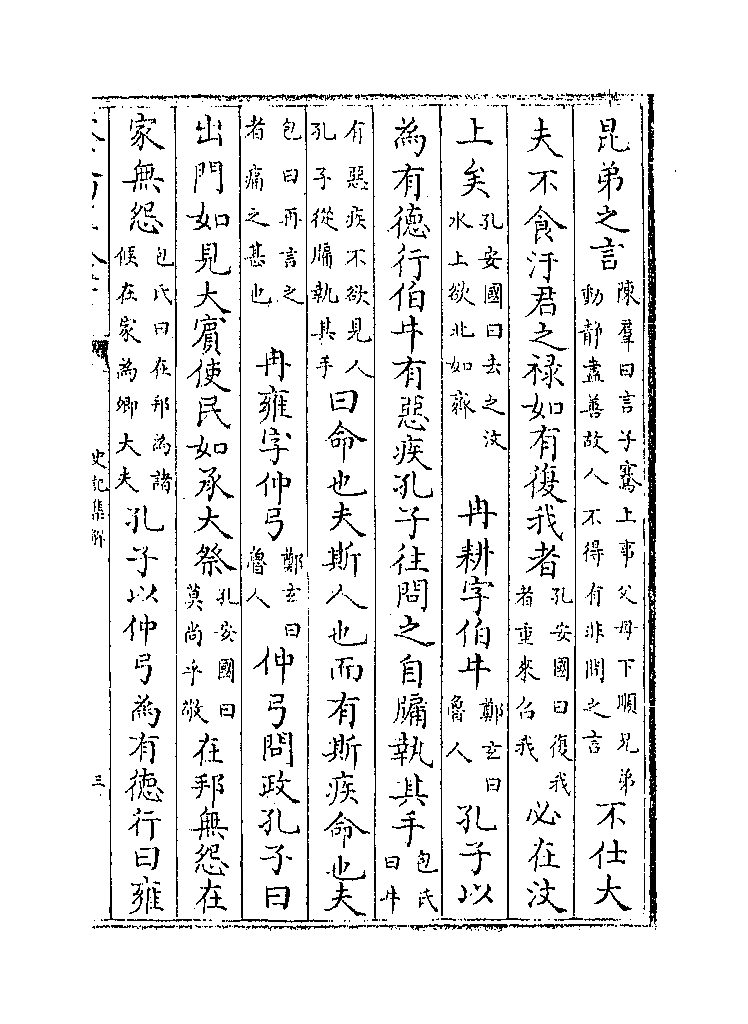 昆弟之言陳羣曰言子騫上事父母下順兄弟動静盡善故人不得有非間之言不仕大
夫不食汙君之禄如有復我者孔安國曰復我者重來召我必在汶
上矣孔安國曰去之汶水上欲北如齊 冉耕字伯牛鄭玄曰魯人孔子以
為有德行伯牛有惡疾孔子往問之自牖執其手包氏曰牛
有惡疾不欲見人孔子從牖執其手曰命也夫斯人也而有斯疾命也夫
包曰再言之者痛之甚也 冉雍字仲弓鄭玄曰魯人仲弓問政孔子曰
出門如見大賓使民如承大祭孔安國曰莫尚乎敬在邦無怨在
家無怨包氏曰在邦為諸候在家為卿大夫孔子以仲弓為有德行曰雍
史記集解
三